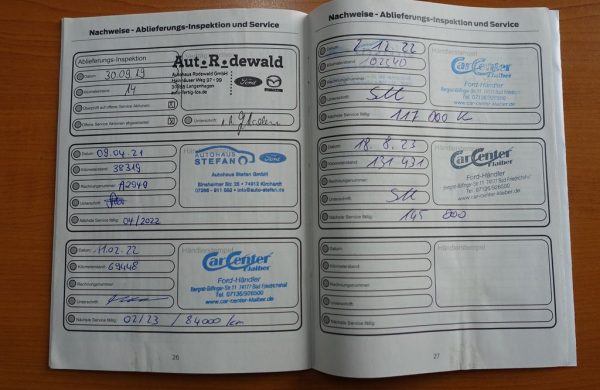 Nachweise - Ablieferungs-Inspektion und Service
Ablieferungs-Inspektion
Datum: 30.09.19
Kilometerstand: 14
Überprüft auf offene Service Aktionen:
Offene Service Aktionen abgearbeitet:
Aut.R.dewald
Autohaus Rodewald GmbH
Hainhäuser Weg 97 - 99
30855 Langenhagen
auto-fertig-los.de
Ford
mazda
Unterschrift:
Datum: 09.04.21
Kilometerstand: 38319
Rechnungsnummer: A2949
Unterschrift:
Nächste Service fällig: 04/2022
AUTOHAUS
STEFAN
Ford
Autohaus Stefan GmbH
Sinsheimer Str. 25 • 74912 Kirchardt
info@auto-stefan.de
Datum: 11.02.22
Kilometerstand: 69448
Rechnungsnummer:
Unterschrift:
Nächste Service fällig: 02/23 / 84000/km
Händlerstempel
CarCenter
Klaiber
Ford-Händler
Bergrat-Bilfinger-Str. 11 74177 Bad Friedrichshall
Tel. 07136/926500
www.car-center-klaiber.de
26
Nachweise - Ablieferungs-Inspektion und Service
Datum: 2.12.22
Kilometerstand:
Rechnungsnummer:
Unterschrift:
Nächste Service fällig: 117 000 K
Händlerstempel
CarCenter
Klaiber
Ford-Händler
Tel. 07136/926500
www.car-center-klaiber.de
Datum: 18.8.23
Kilometerstand: 131 431
Rechnungsnummer:
Unterschrift:
Nächste Service fällig: 145 000
CarCenter
Klaiber
Ford-Händler
Bergrat-Bilfinger-Str. 11 74177 Bad Friedrichshall
Tel. 07136/926500
www.car-center-klaiber.de
Datum:
Kilometerstand:
Rechnungsnummer:
Unterschrift:
Nächste Service fällig:
Händlerstempel
27